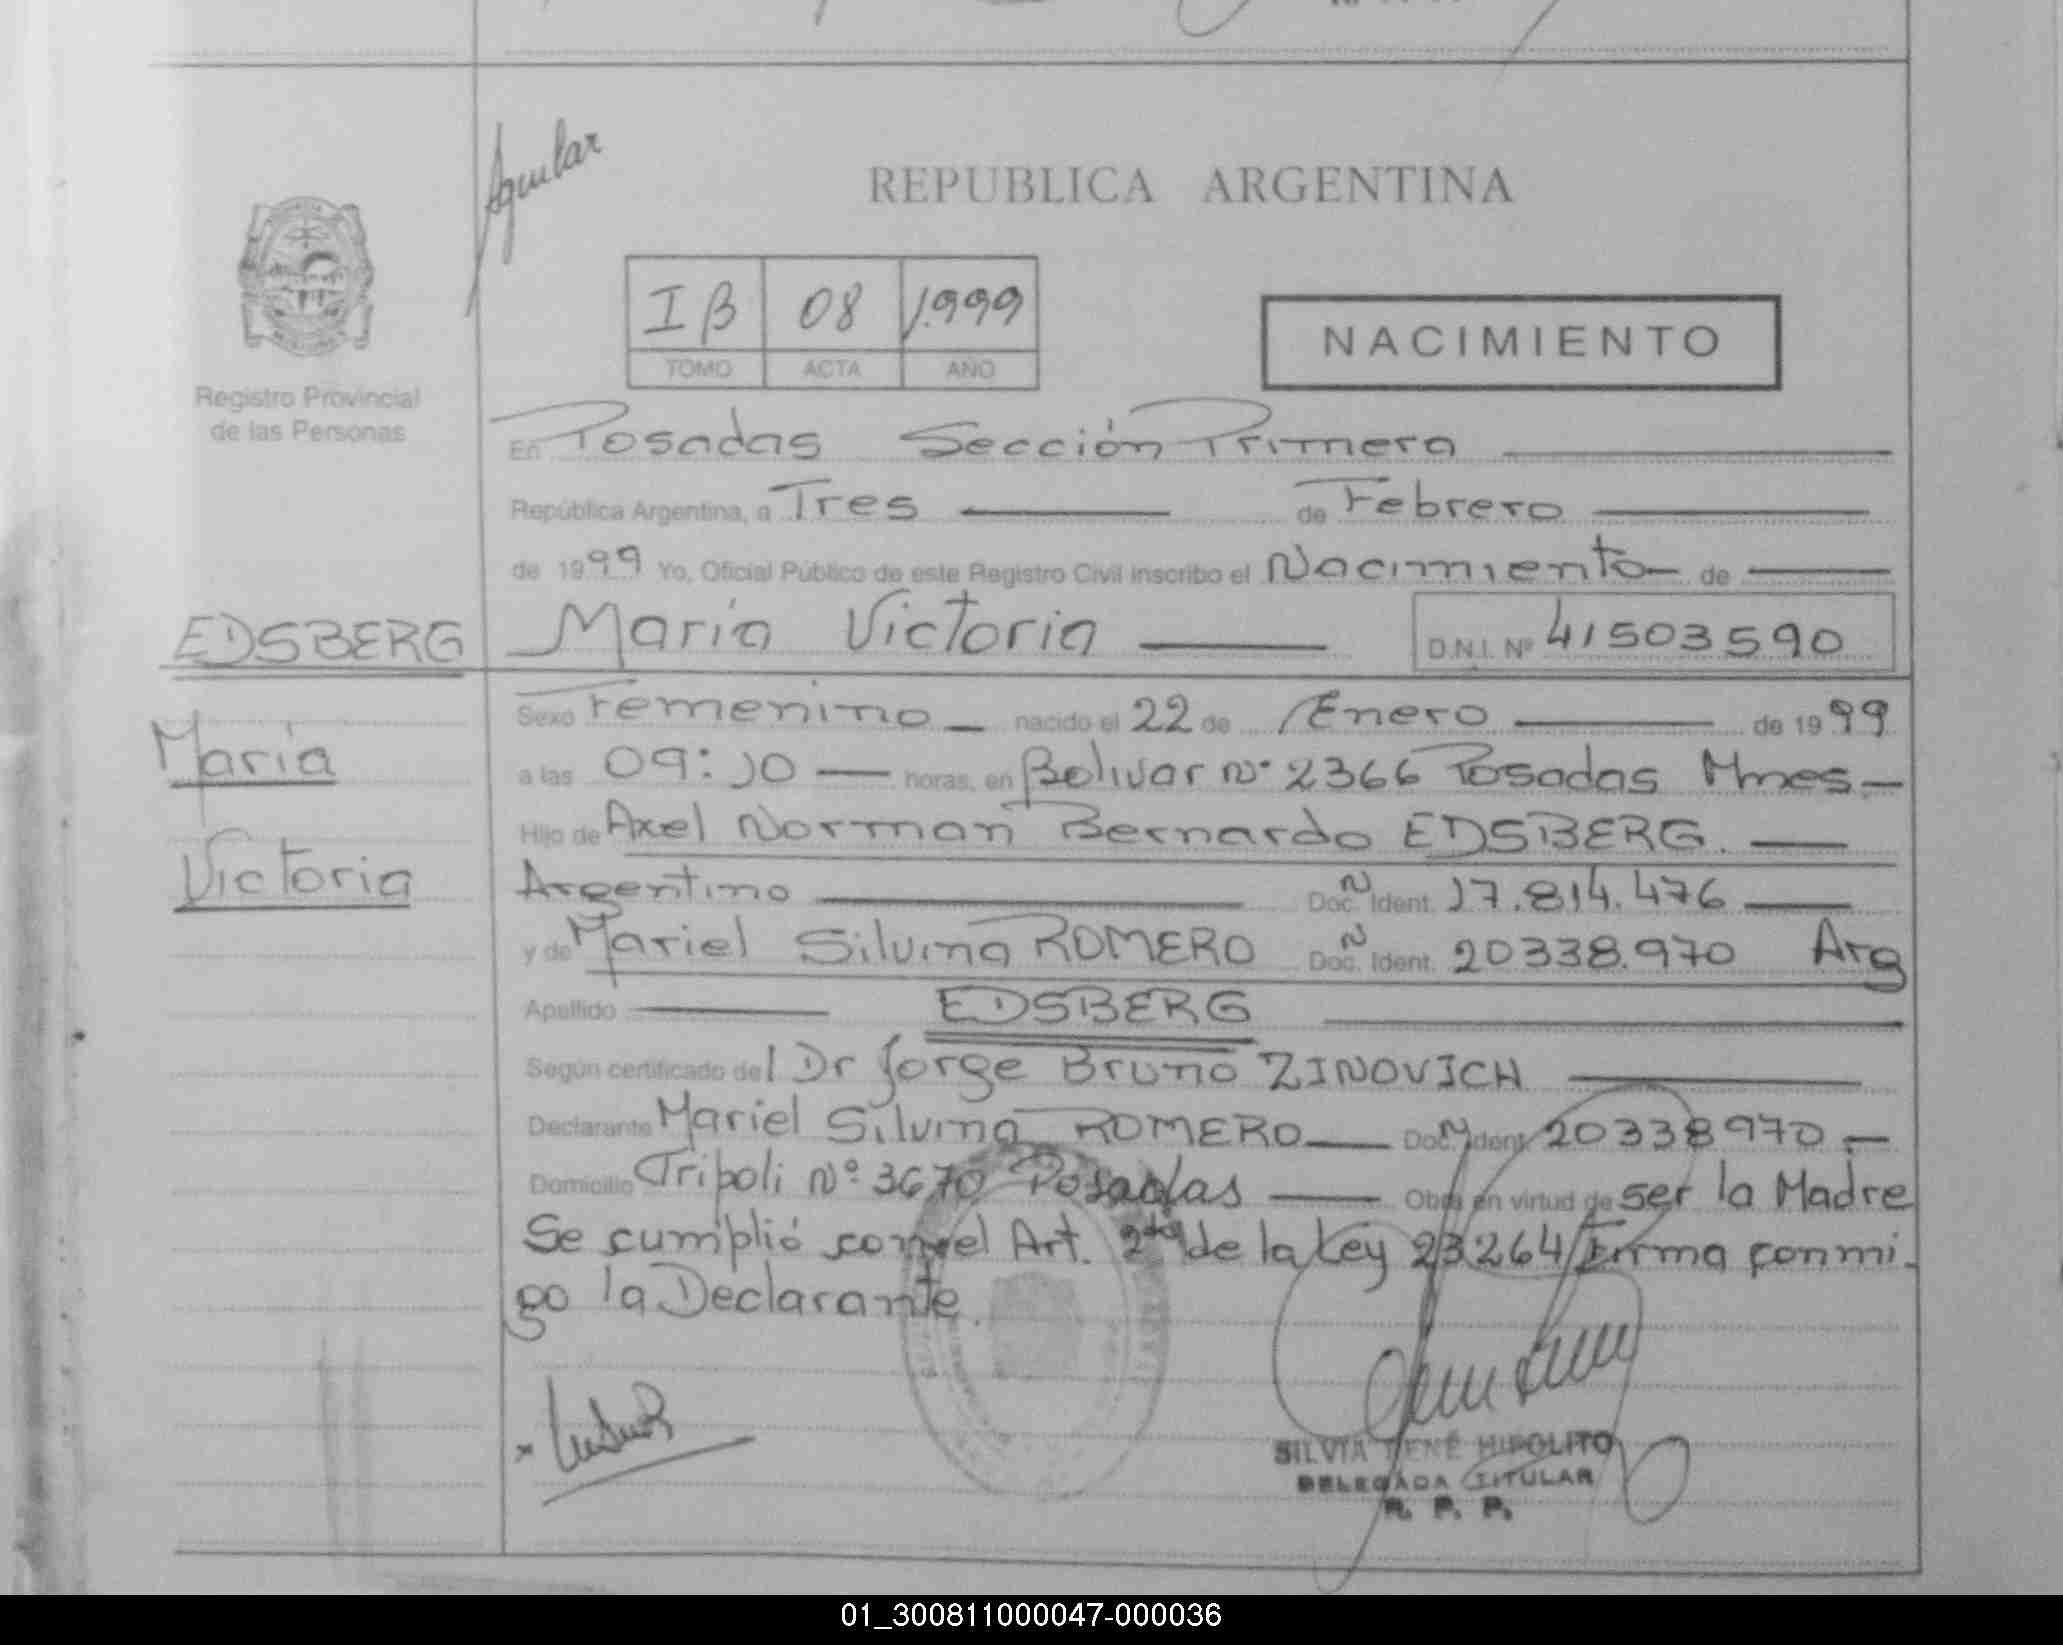 Aguilar
REPUBLICA ARGENTINA
I B 08 1.999
TOMO ACTA AÑO
NACIMIENTO
Registro Provincial
de las Personas
En Posadas Sección Primera
República Argentina, a Tres de Febrero
de 1999 Yo, Oficial Público de este Registro Civil inscribo el Nacimiento de
EDSBERG María Victoria D.N.I. Nº 41503590
María
Victoria
Sexo Femenino nacido el 22 de Enero de 1999
a las 09:10 horas, en Bolivar Nº 2366 Posadas Mnes.
Hijo de Axel Norman Bernardo EDSBERG.
Argentino N Doc. Ident. 17.814.476
y de Mariel Silvina ROMERO N Doc. Ident. 20338.970 Arg
Apellido EDSBERG
Según certificado del Dr Jorge Bruno ZINOVICH
Declarante Mariel Silvina ROMERO Doc. N Ident. 20338970
Domicilio Tripoli Nº 3670 Posadas Obra en virtud de ser la Madre
Se cumplió con el Art. 2do de la Ley 23264 Firma conmi-
go la Declarante.
SILVIA RENÉ HIPOLITO
DELEGADA TITULAR
R. P. P.
01_300811000047-000036